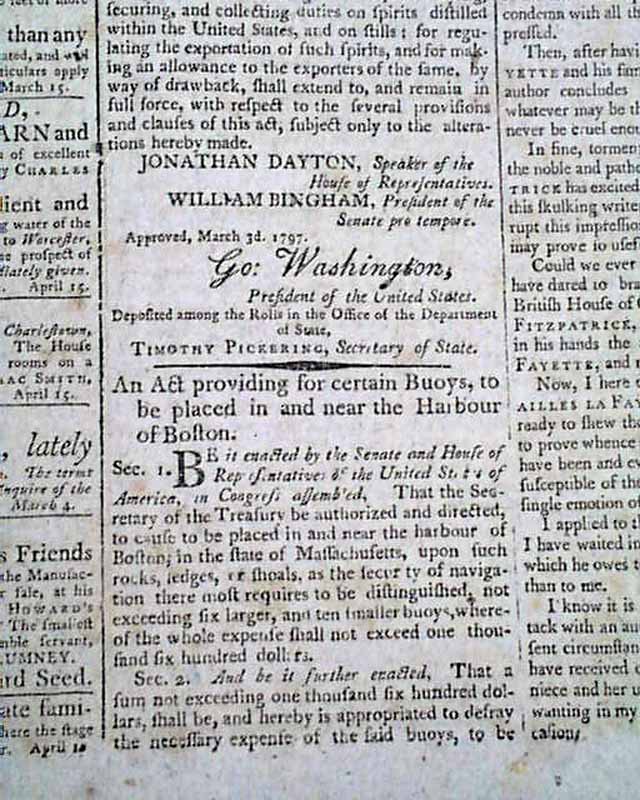 than any
ated, and
ticulars apply
March 15.
D,
ARN and
of excellent
y CHARLES
lient and
ng water of the
to Worcester,
e prospect of
diately given.
April 15.
Charlestown,
The House
rooms on a
AC SMITH,
April 15.
lately
The terms
nquire of the
March 4.
s Friends
the Manufac-
r sale, at his
HOWARD's
The smallest
mble servant,
UMNEY.
rd Seed.
ate fami-
here the stage
April 1
securing, and collecting duties on spirits distilled
within the United States, and on stills; for regu-
lating the exportation of such spirits, and for mak-
ing an allowance to the exporters of the same, by
way of drawback, shall extend to, and remain in
full force, with respect to the several provisions
and clauses of this act, subject only to the altera-
tions hereby made.
JONATHAN DAYTON, Speaker of the
House of Representatives.
WILLIAM BINGHAM, President of the
Senate pro tempore.
Approved, March 3d. 1797.
Go: Washington,
President of the United States.
Deposited among the Rolls in the Office of the Department
of State,
TIMOTHY PICKERING, Secretary of State.
An Act providing for certain Buoys, to
be placed in and near the Harbour
of Boston.
Sec. 1. BE it enacted by the Senate and House of
Representatives of the United States of
America, in Congress assembled, That the Sec-
retary of the Treasury be authorized and directed,
to cause to be placed in and near the harbour of
Boston, in the state of Massachusetts, upon such
rocks, ledges, or shoals, as the security of naviga-
tion there most requires to be distinguished, not
exceeding six larger, and ten smaller buoys, where-
of the whole expense shall not exceed one thou-
sand six hundred dollars.
Sec. 2. And be it further enacted, That a
sum not exceeding one thousand six hundred dol-
lars, shall be, and hereby is appropriated to defray
the necessary expense of the said buoys, to be
condemn with all t
pressed.
Then, after havi
YETTE and his fam
author concludes
whatever may be t
never be cruel eno
In fine, tormen
the noble and pathe
TRICK has excited
this skulking writer
rupt this impression
may prove so usef
Could we ever
have dared to bra
British House of
FITZPATRICK,
in his hands the
FAYETTE, and
Now, I here
AILLES LA FAY
ready to shew the
to prove whence
have been and e
susceptible of the
single emotion of
I applied to t
I have waited in
which he owes t
than to me.
I know it is
tack with an au
sent circumstan
have received
niece and her u
wanting in my
casion,